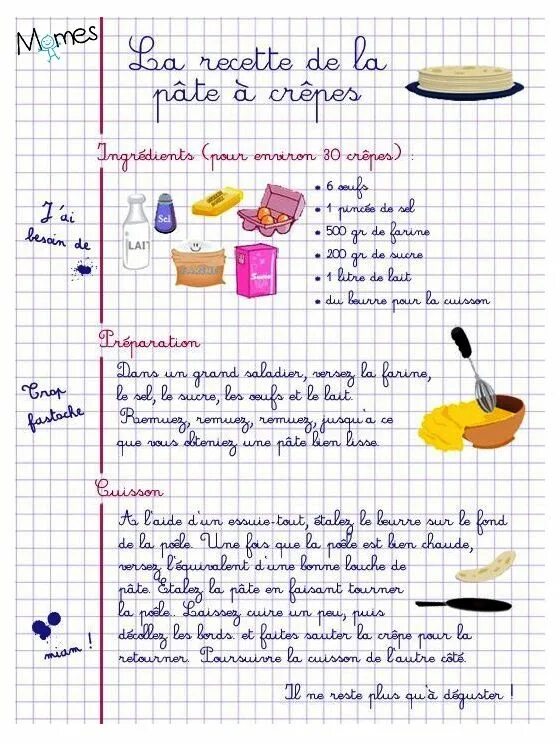 Momes
La recette de la
pâte à crêpes
Ingrédients (pour environ 30 crêpes) :
J'ai
besoin de
LAIT
Sel
FARINE
Sucre
• 6 œufs
• 1 pincée de sel
• 500 gr de farine
• 200 gr de sucre
• 1 litre de lait
• du beurre pour la cuisson
Préparation
Trop
fastoche
Dans un grand saladier, versez la farine,
le sel, le sucre, les œufs et le lait.
Remuez, remuez, remuez, jusqu'a ce
que vous obteniez une pâte bien lisse.
Cuisson
A l'aide d'un essuie-tout, étalez le beurre sur le fond
de la poêle. Une fois que la poêle est bien chaude,
versez l'équivalent d'une bonne louche de
pâte. Etalez la pâte en faisant tourner
la poêle.. Laissez cuire un peu, puis
décollez les bords. et faites sauter la crêpe pour la
retourner. Poursuivre la cuisson de l'autre côté.
miam !
Il ne reste plus qu'à déguster !